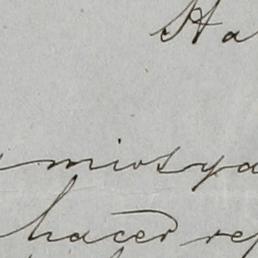 Ha
mios ya
hacer re